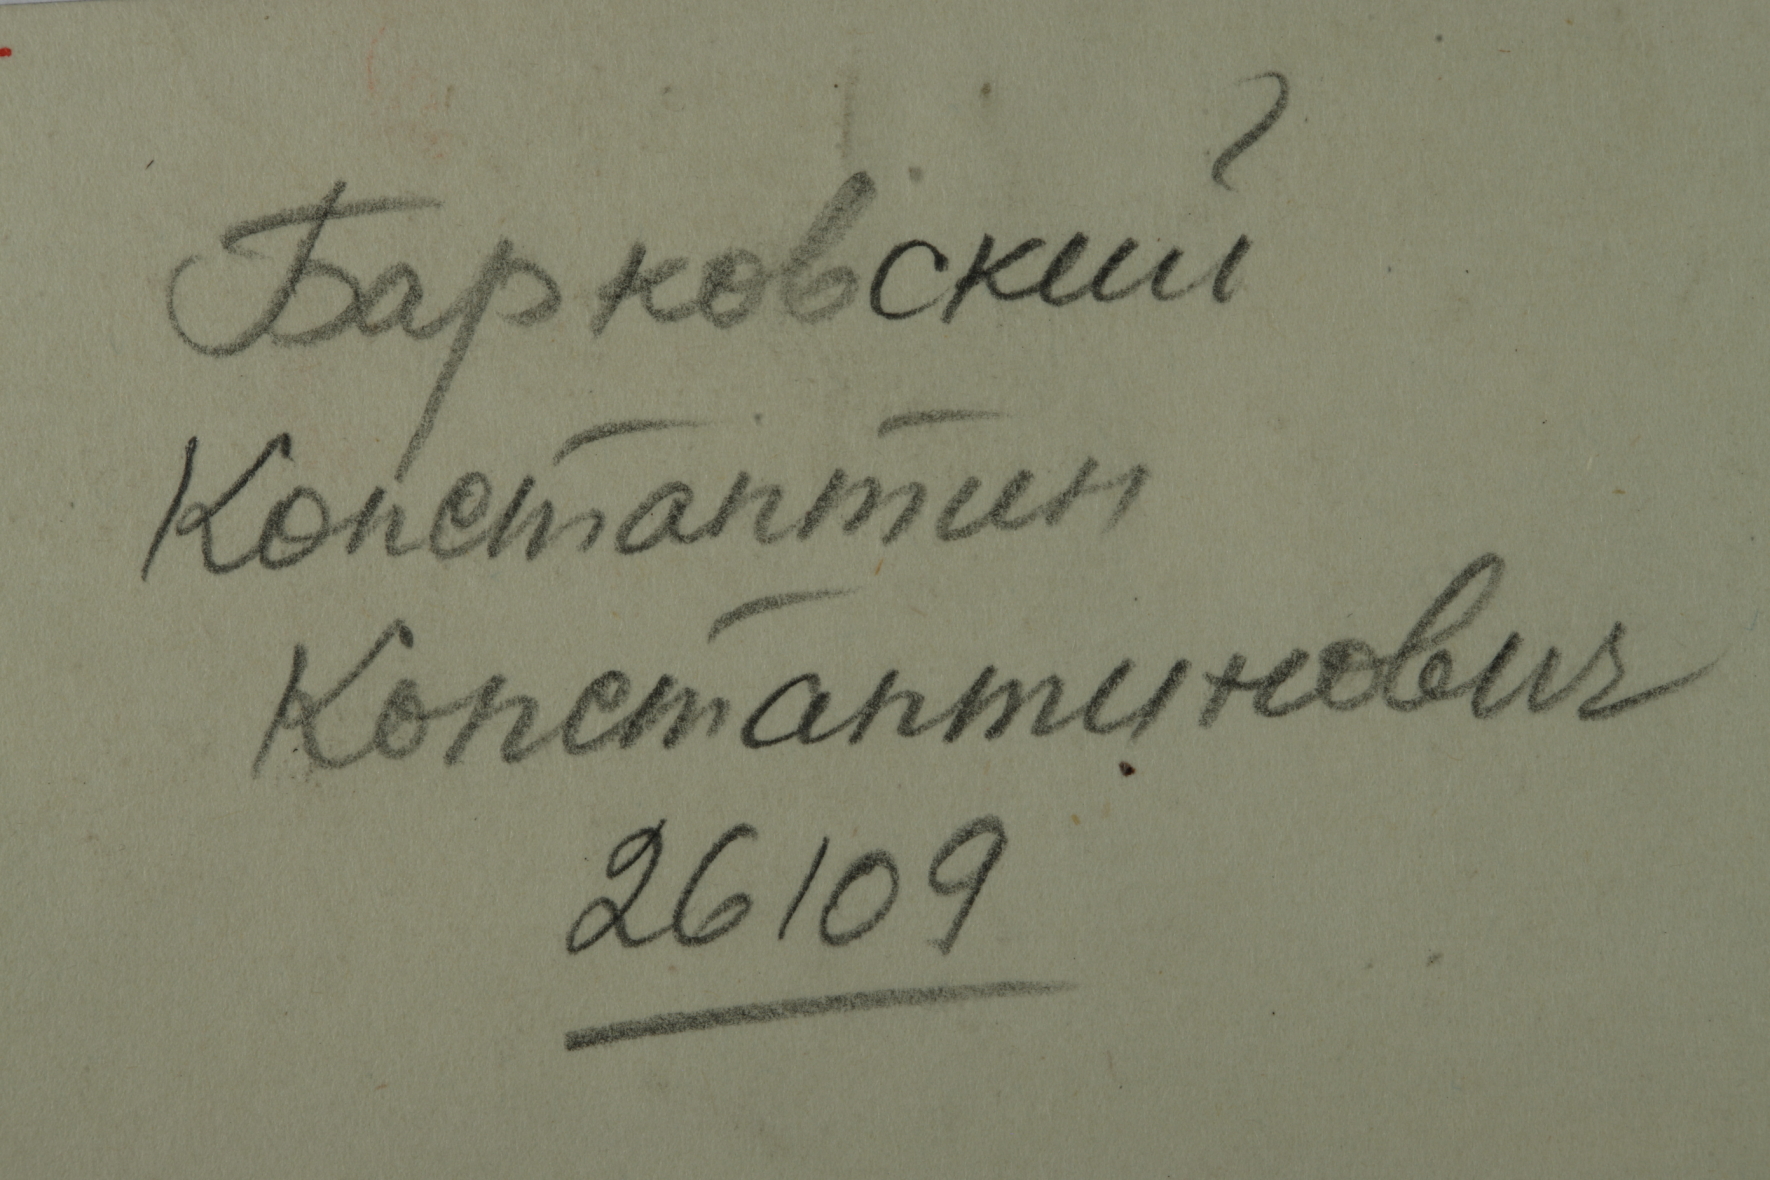 Барковский
Константин
Константинович
26109